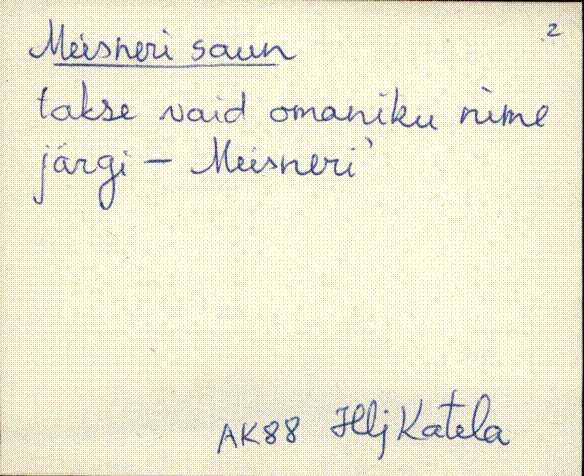 2
Meisneri saun
takse vaid omaniku nime
järgi – Meisneri'
AK88 Hlj Katela